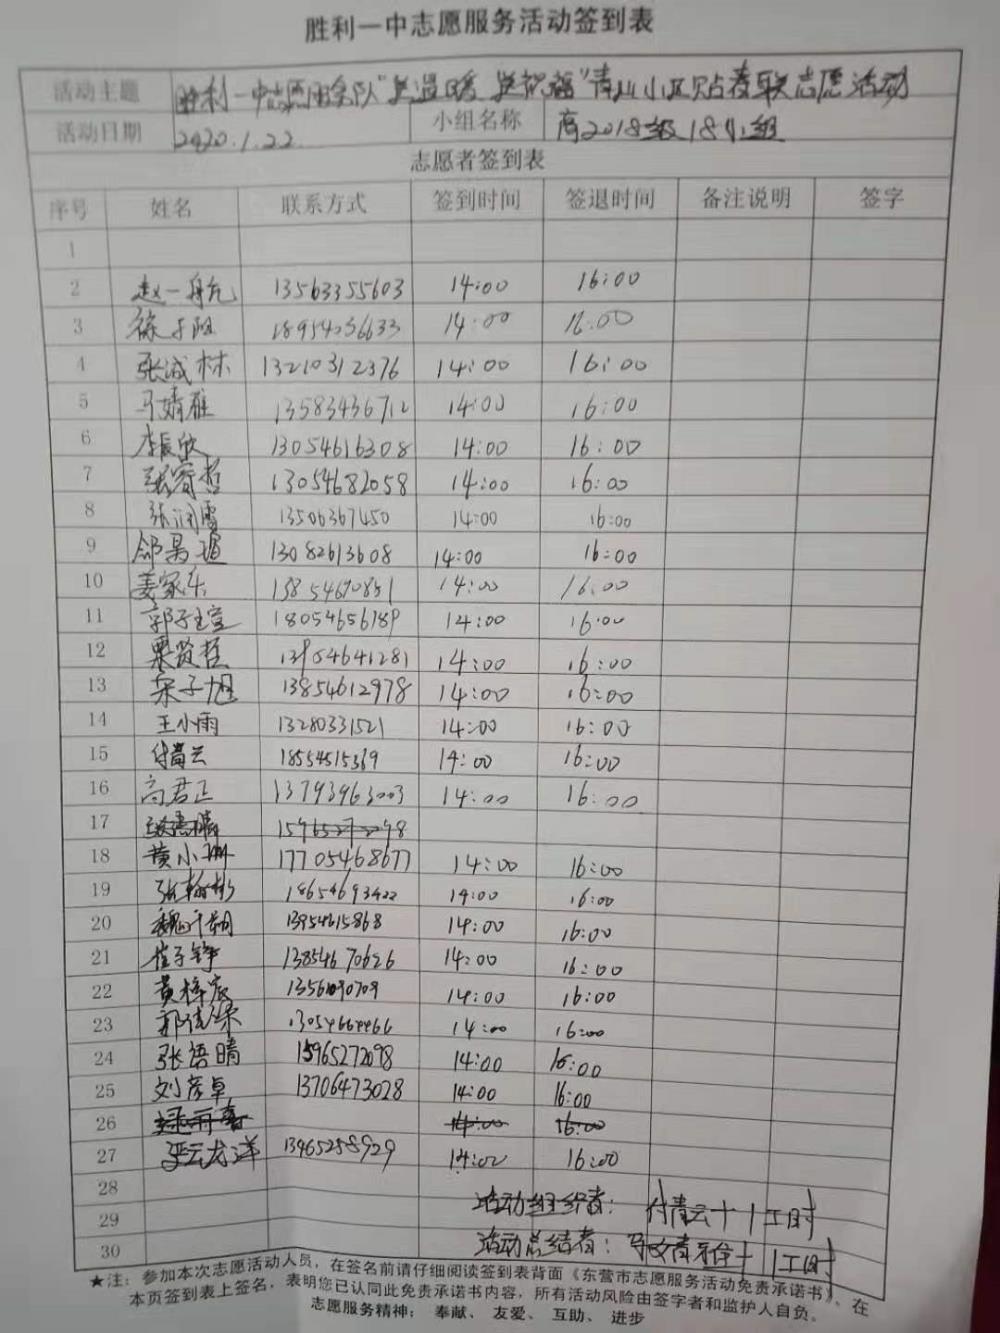 胜利一中志愿服务活动签到表
活动主题 胜利一中志愿服务队"送温暖 送祝福"青山小区贴春联志愿活动
活动日期 2020.1.22. 小组名称 高2018级18小组
志愿者签到表
序号 姓名 联系方式 签到时间 签退时间 备注说明 签字
1
2 赵一航 13563355603 14:00 16:00
3 徐子阳 18954036633 14:00 16:00
4 张诚林 13210312376 14:00 16:00
5 马婧雅 13583436712 14:00 16:00
6 李辰欣 13054616308 14:00 16:00
7 张睿哲 13054682058 14:00 16:00
8 张润雪 13506367450 14:00 16:00
9 13082613608 14:00 16:00
10 姜家乐 15854670851 14:00 16:00
11 郭子萱 18054656789 14:00 16:00
12 栗贤哲 13954641281 14:00 16:00
13 宋子旭 13854612978 14:00 16:00
14 王小雨 13280331521 14:00 16:00
15 付青云 18554515369 14:00 16:00
16 高君正 13793963003 14:00 16:00
17 15965272098
18 黄小珊 17705468677 14:00 16:00
19 张翰彬 18654693422 14:00 16:00
20 魏千朔 13954615868 14:00 16:00
21 崔子铮 13854670626 14:00 16:00
22 黄梓宸 13561090709 14:00 16:00
23 13054664466 14:00 16:00
24 张语晴 15965272098 14:00 16:00
25 刘彦卓 13706473028 14:00 16:00
26 14:00 16:00
27 严云龙洋 13465258929 14:00 16:00
28 活动组织者: 付青云+1工时
29
30 活动总结者: 马婧雅+1工时
★注:参加本次志愿活动人员,在签名前请仔细阅读签到表背面《东营市志愿服务活动免责承诺书》、在
本页签到表上签名,表明您已认同此免责承诺书内容,所有活动风险由签字者和监护人自负。
志愿服务精神:奉献、友爱、互助、进步